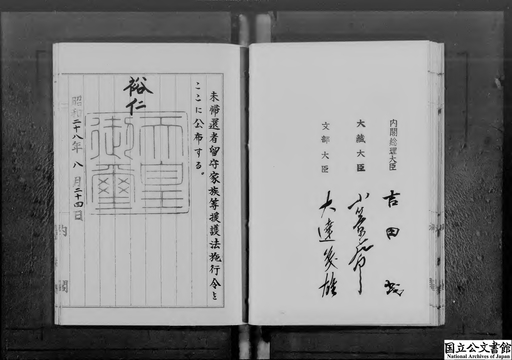 未帰還者留守家族等援護法施行令を
ここに公布する。
裕仁
天皇
御璽
昭和二十八年八月二十四日
内閣
内閣総理大臣
吉田茂
大蔵大臣
小笠原三九郎
文部大臣
大達茂雄
国立公文書館
National Archives of Japan